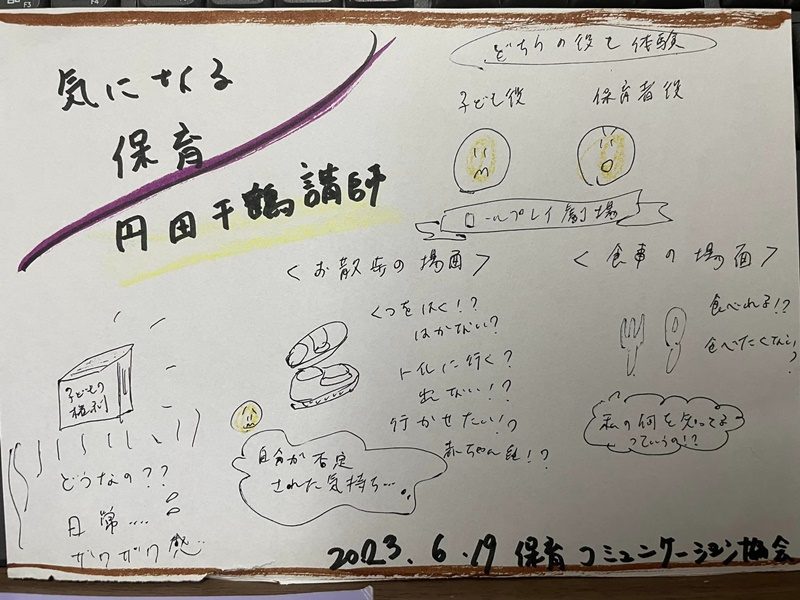 気になる
保育
円田千鶴講師
どちらの役も体験
子ども役
保育者役
ロールプレイ劇場
<お散歩の場面>
くつをはく!?
はかない?
トイレに行く?
出ない!?
行かせたい!?
赤ちゃん
自分が否定
された気持ち…
<食事の場面>
食べれる!?
食べたくない!?
私の何を知ってる
っていうの!?
子どもの
権利
どうなの??
日常….
ザワザワ感…
2023.6.19 保育コミュニケーション協会